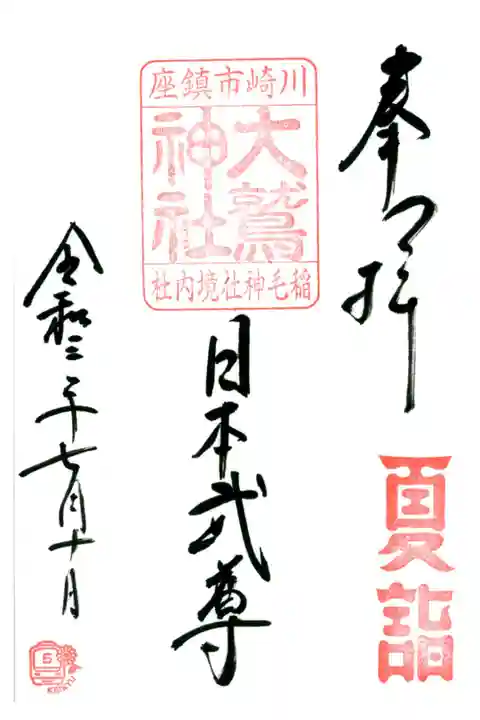 奉拝
夏詣
川崎市鎮座
大鷲
神社
稲毛神社境内社
日本武尊
令和三年七月十日
5
KEIKYU